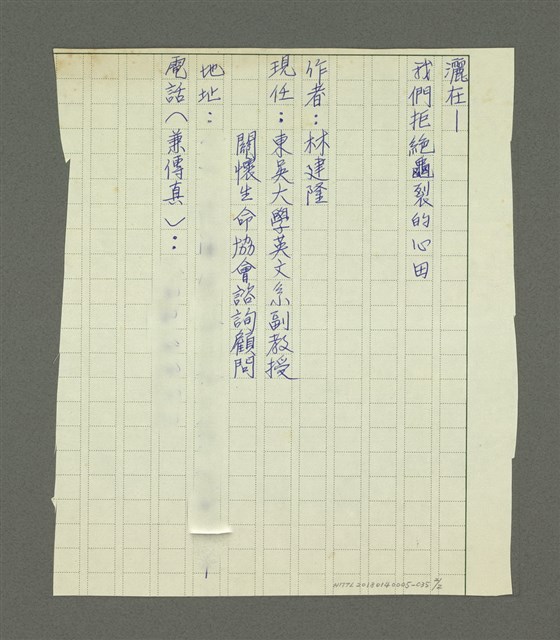 灑在—
我們拒絶龜裂的心田
作者：林建隆
現任：東吳大學英文系副教授
關懷生命協會諮詢顧問
地址：
電話（兼傳真）：
NMTL20180140005-035 2/2